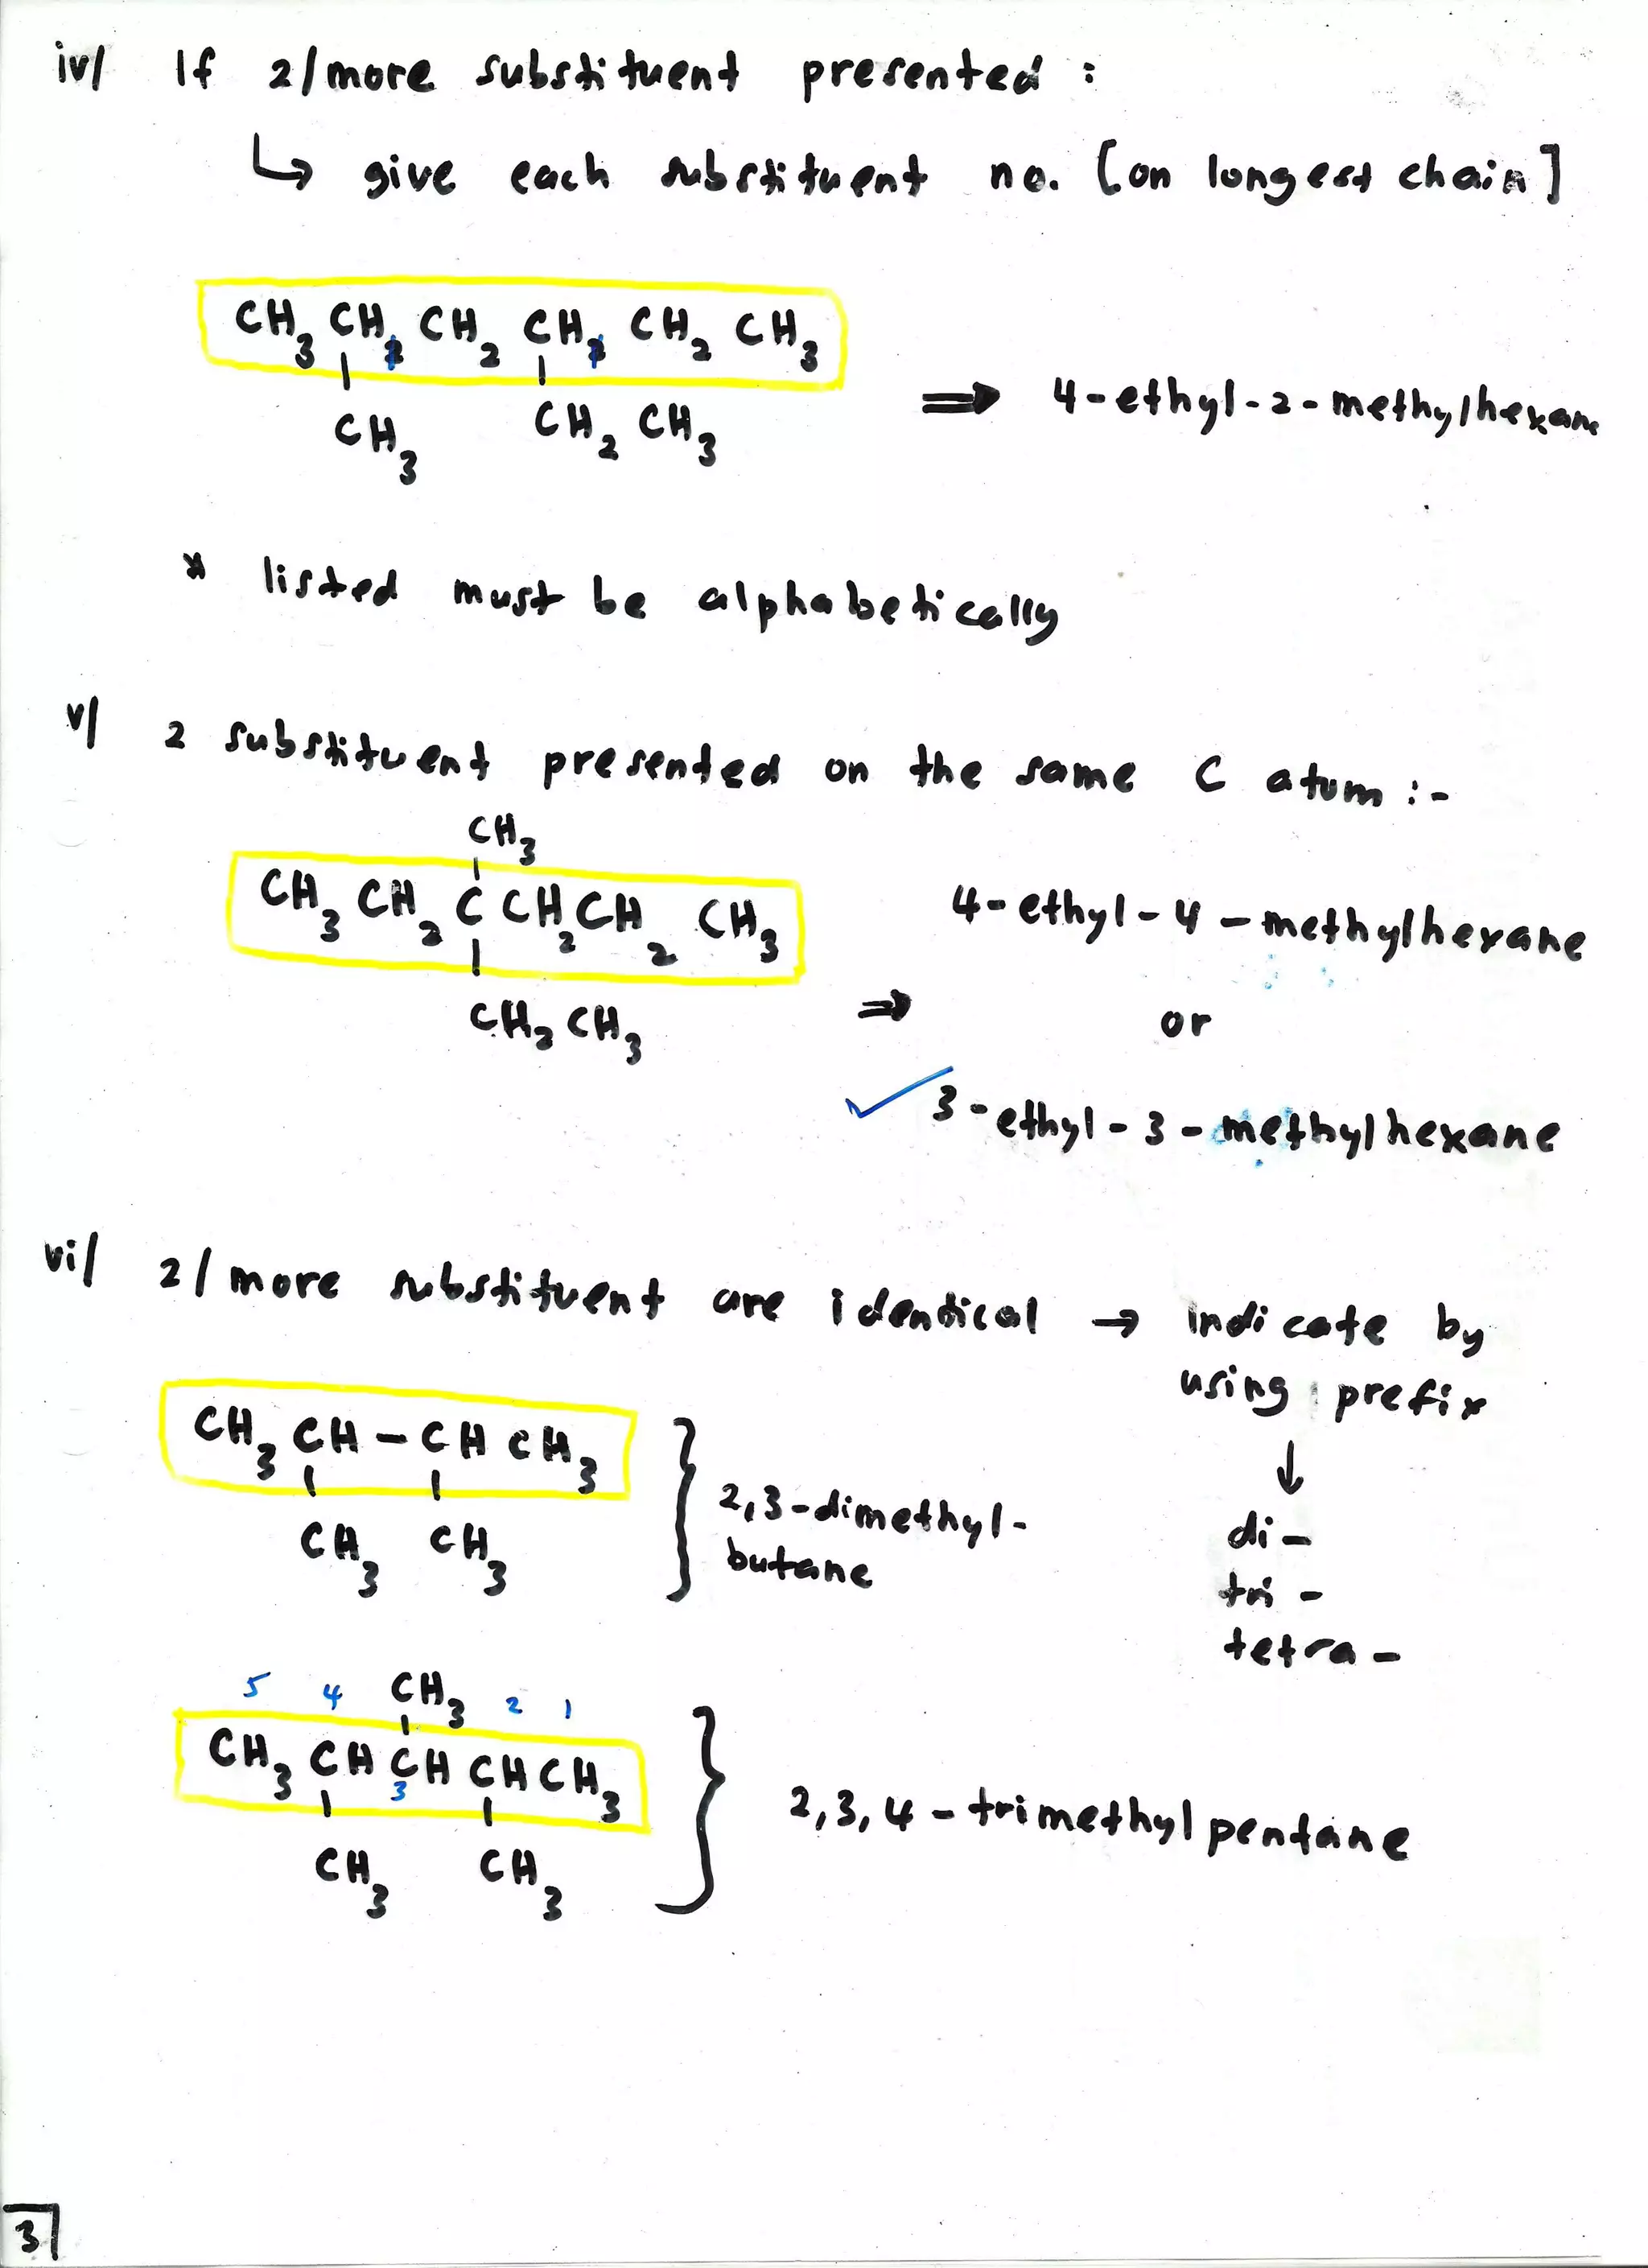 iv/ If 2/more substituent presented :
↳ give each substituent no. [on longest chain]
CH3 CH CH2 CH CH2 CH3
CH3 CH2 CH3
⇒ 4-ethyl-2-methylhexane
* listed must be alphabetically
v/ 2 substituent presented on the same C atom :-
CH3
CH3 CH2 C CH2 CH2 CH3
CH2 CH3
⇒
4-ethyl-4-methylhexane
or
✓ 3-ethyl-3-methylhexane
vi/ 2/more substituent are identical → indicate by
using prefix
↓
di-
tri-
tetra-
CH3 CH - CH CH3
CH3 CH3
2,3-dimethyl-
butane
5 4 CH3 2 1
CH3 CH CH CH CH3
3
CH3 CH3
2,3,4-trimethylpentane
3